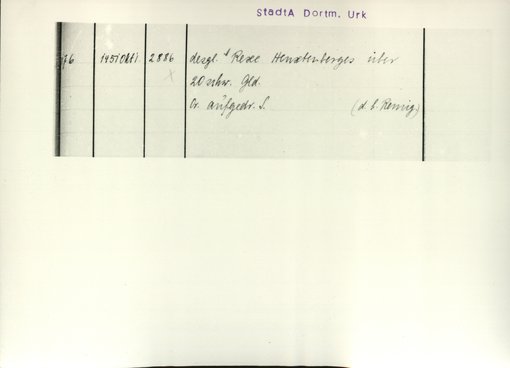 StadtA Dortm. Urk
76 1457 Okt 1 2886 desgl. d Rexe Henxtenberges über
20 rhr. Gld.
Or. aufgedr. S. (d. b. Remig)